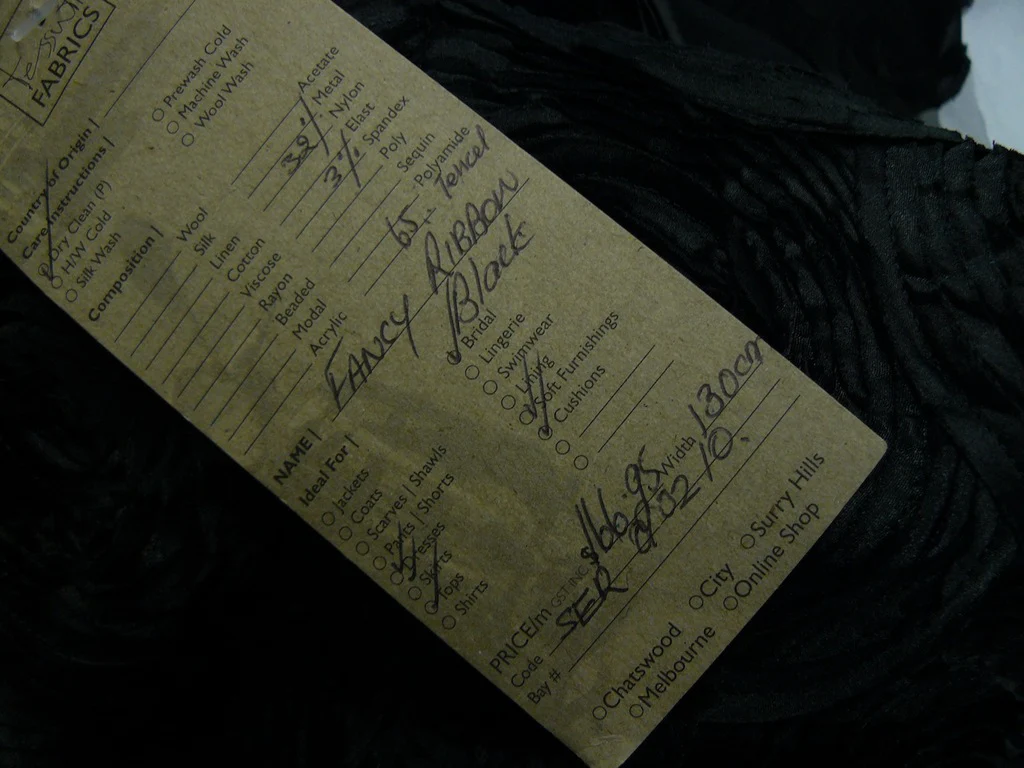 FABRICS
Country of Origin |
Care Instructions |
Dry Clean (P)
H/W Cold
Silk Wash
Prewash Cold
Machine Wash
Wool Wash
Composition |
Wool
Silk
Linen
Cotton
Viscose
Rayon
Beaded
Modal
Acrylic
Acetate
Metal
32% Nylon
3% Elast
Spandex
Poly
Sequin
Polyamide
65 Tencel
NAME | FANCY RIBBON
/Black
Ideal For |
Jackets
Coats
Scarves | Shawls
Pants | Shorts
Dresses
Skirts
Tops
Shirts
Bridal
Lingerie
Swimwear
Lining
Soft Furnishings
Cushions
PRICE/m GST INC $166.95 Width 130cm
Code SER 02/10.
Bay #
Chatswood
City
Surry Hills
Melbourne
Online Shop